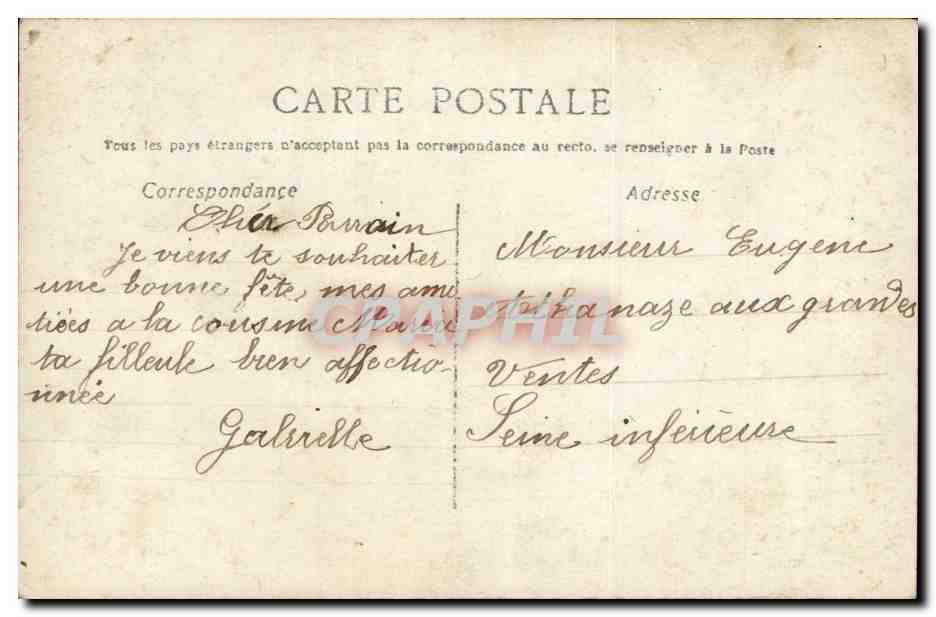 CARTE POSTALE
Tous les pays étrangers n'acceptant pas la correspondance au recto, se renseigner à la Poste
Correspondance
Cher Parrain
Je viens te souhaiter
une bonne fête, mes ami
tiées a la cousine Maria
ta filleule bien affectio-
nnée
Gabrielle
Adresse
Monsieur Eugene
aux grandes
Ventes
Seine inférieure
CPAPHIL